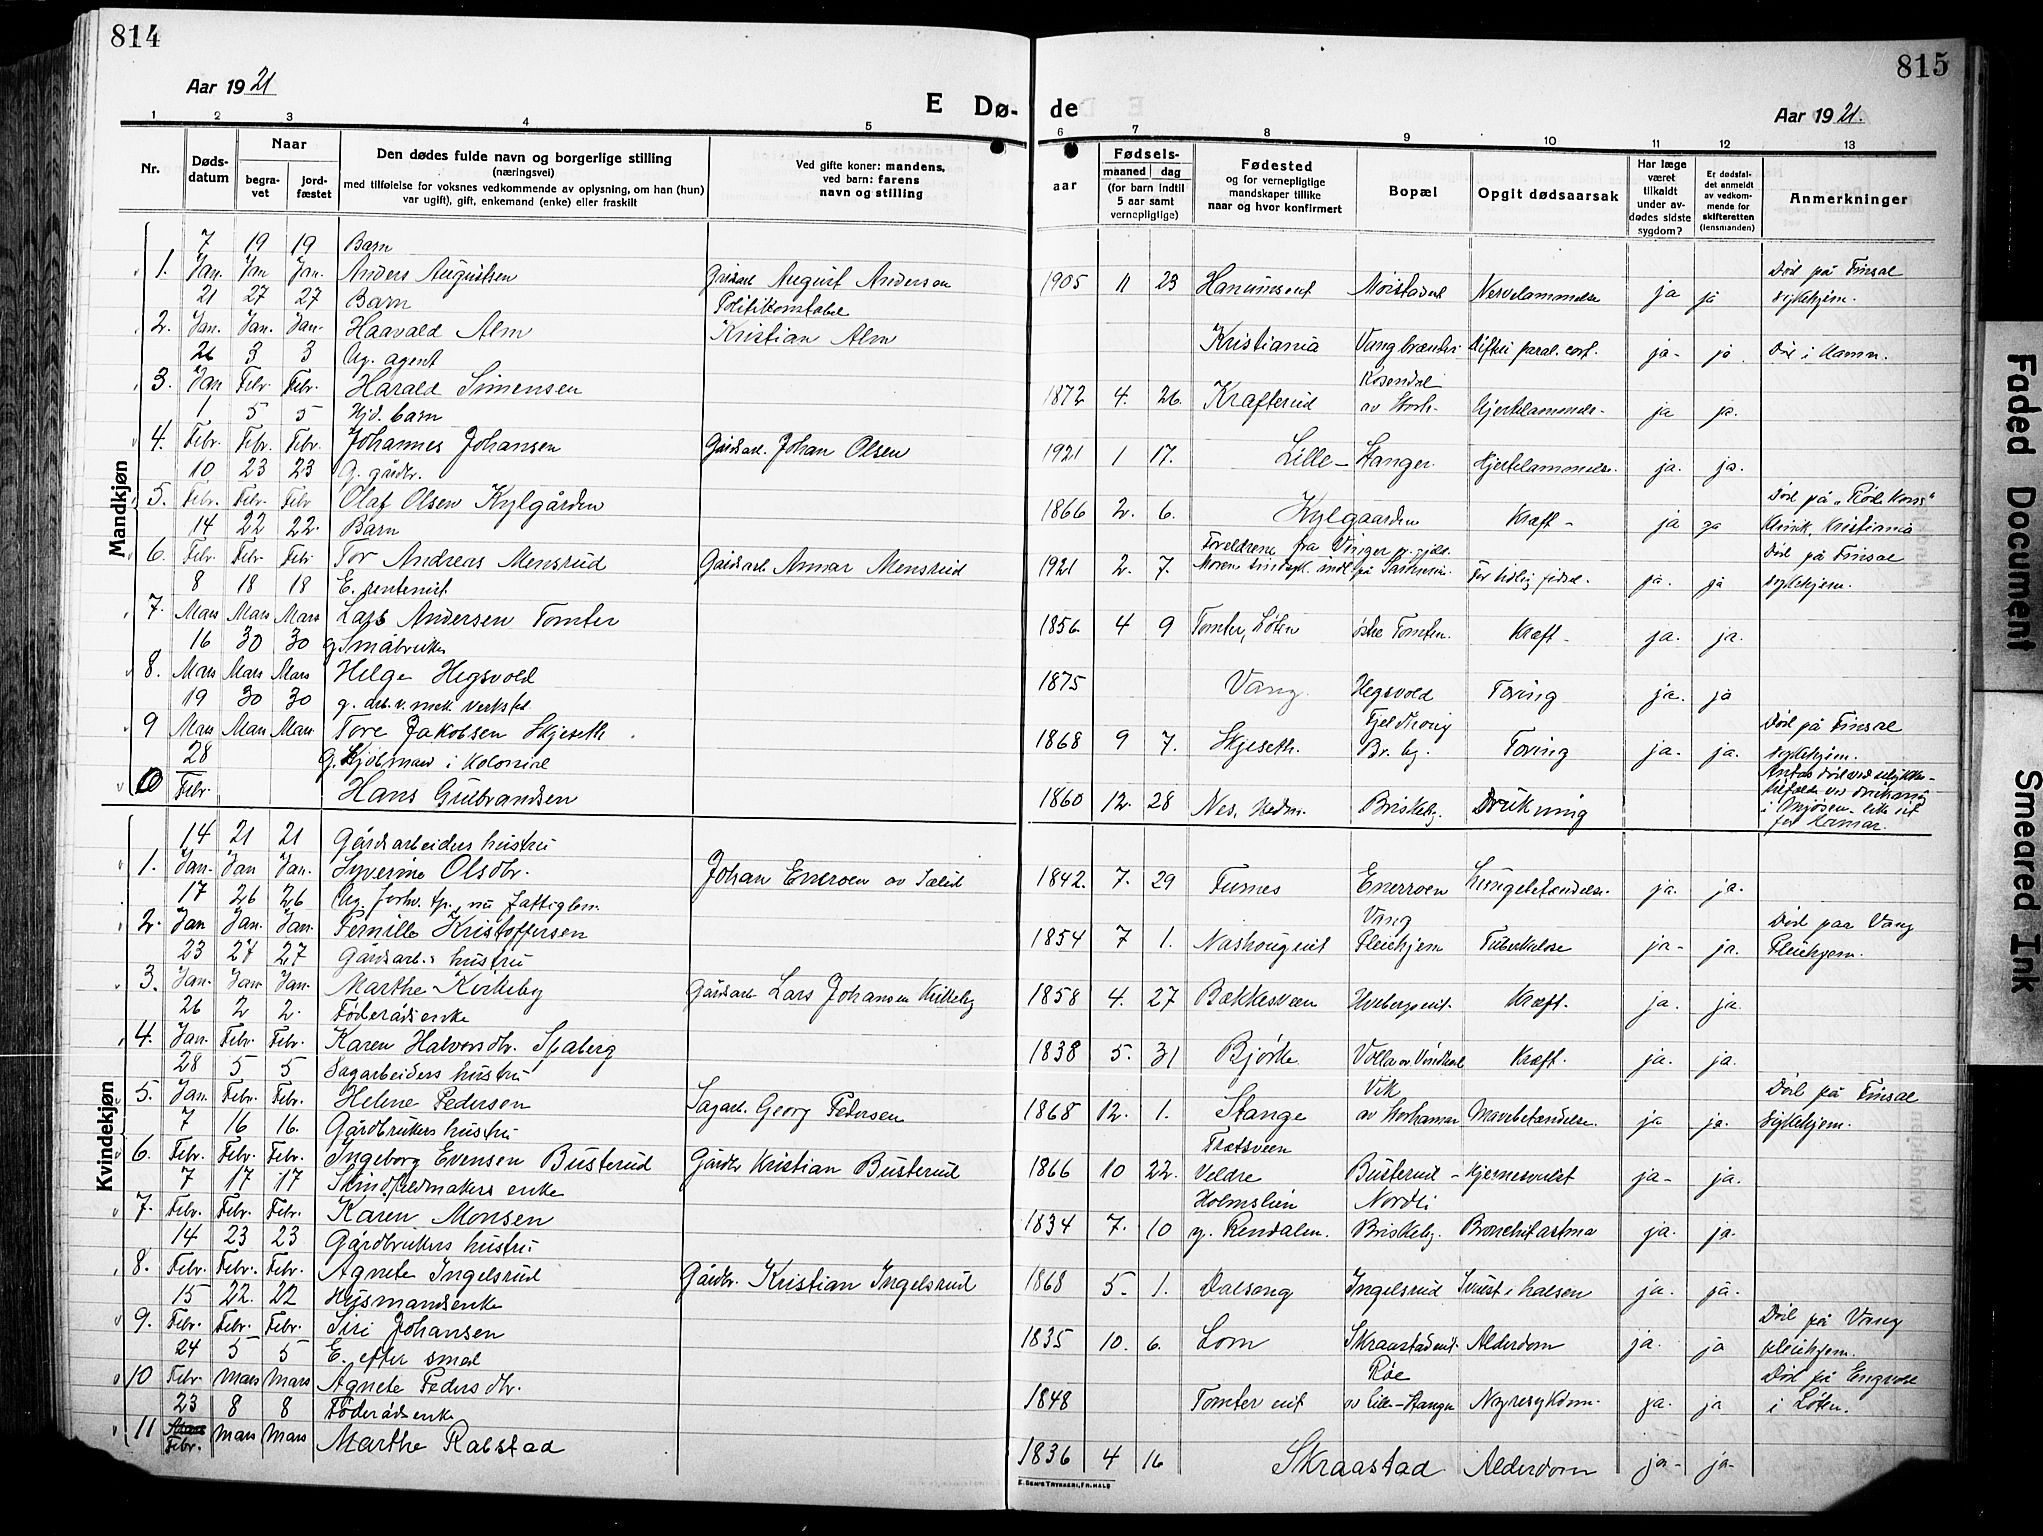 814
815
Aar 1921
E Dø-
de
Aar 1921.
1 2 3 4 5 6 7 8 9 10 11 12 13
Nr.
Døds-
datum
Naar
begra-
vet
jord-
fæstet
Den dødes fulde navn og borgerlige stilling
(næringsvei)
med tilføielse for voksnes vedkommende av oplysning, om han (hun)
var ugift), gift, enkemand (enke) eller fraskilt
Ved gifte koner: mandens,
ved barn: farens
navn og stilling
Fødsels-
aar
maaned dag
(for barn indtil
5 aar samt
vernepligtige)
Fødested
og for vernepligtige
mandskaper tillike
naar og hvor konfirmert
Bopæl
Opgit dødsaarsak
Har læge
været
tilkaldt
under av-
dødes sidste
sygdom?
Er dødsfal-
det anmeldt
av vedkom-
mende for
skifteretten
(lensmanden)
Anmerkninger
Mandkjøn
7 19 19 Barn
1. Jan. Jan Jan. Anders Augustsen August Andersen 1905 11 23 ja ja Død på Finsal
sykehjem.
21 27 27 Barn Politikonstabel
2. Jan. Jan. Jan. Haavald Alm Kristian Alm Kristiania ja- ja Død i Hamar.
26 3 3 Ug. agent
3. Jan Febr. Febr. Harald Simensen 1872 4. 26. Krafterud Rosendal
av Storh. Hjertelammelse- ja ja.
1 5 5 barn
4. Febr. Febr. Febr. Johannes Johansen Gårdsarb. Johan Olsen 1921 1 17. Lille-Stanger. Hjertelammelse. ja. ja.
10 23 23 G. gårdbr.
5. Febr. Febr. Febr Olaf Olsen Kylgården 1866 2. 6. Kylgaarden Kræft- ja ja Død på "Røde Kors"
klinik, Kristiania
14 22 22. Barn
6. Febr. Febr. Febr Tor Andreas Mensrud Gårdsarb. Annar Mensrud 1921 2. 7. Foreldrene fra Vinger For tidlig fødsel. ja. ja Død på Finsal
sykehjem.
8 18 18 E. rentenist
7. Mars Mars Mars Lars Andersen Tomter 1856 4 9 Tomter, Løten østre Tomter. Kræft- ja. ja.
16 30 30 g. Småbruker
8. Mars Mars Mars Helge Hegsvold 1875 Vang. Hegsvold Tæring ja. ja
19 30 30 g. arb. v. mek. verksted
9 Mars Mars Mars Tore Jakobsen Skjeseth 1868 9 7. Skjeseth. Br. by. Tæring ja- ja. Død på Finsal
sykehjem.
28 G. Kjøbmand i Kolonial
10 Febr. Hans Gulbrandsen 1860 12. 28 Nes, Hedm. Briskeby. Drukning Antas død ved ulykkes-
tilfælde ved drukning
i Mjøsen- litt ut
for Hamar.
Kvindekjøn
14 21 21 Gårdsarbeiders hustru
1. Jan. Jan Jan. Syverine Olsdtr. Johan Enerroen av Sælid 1842. 7. 29 Furnes Enerroen Lungebetændelse. ja. ja.
17 26 26 Ug. forhv. tp. nu fattiglem.
2. Jan Jan. Jan. Pernille Kristoffersen 1854 7 1. Vang
Pleiehjem Tuberkulose ja- ja. Død paa Vang
Pleiehjem.
23 27 27 Gårdsarb.s hustru
3. Jan. Jan. Jan. Marthe Kirkeby Gårdsarb. Lars Johansen Kirkeby 1858 4. 27 Bækkesveen Kræft. ja. ja.
26 2 2. Føderådsenke
4. Jan. Febr. Febr. Karen Halvorsdtr. Spaberg 1838 5. 31 Bjørke Kræft. ja. ja.
28 5 5 Sagarbeiders hustru
5. Jan. Febr. Febr. Helene Pedersen Sagarb. Georg Pedersen 1868 12. 1. Stange Vik
av Storhamar Mavebetændelse. ja ja. Død på Finsal
sykehjem.
7 16 16. Gårdbrukers hustru
6. Febr. Febr. Febr. Ingeborg Evensen Busterud Gårdbr Kristian Busterud 1866 10 22. Veldre Busterud - Hjernesvulst ja- ja.
7 17 17 Skindfeldmakers enke
7. Febr. Febr. Febr. Karen Monsen 1834 7. 10 Holmslien
y. Rendalen. Nordli
Briskeby. Bronchitastma ja. ja.
14 23 23 Gårdbrukers hustru
8. Febr. Febr. Febr. Agnete Ingelsrud Gårdbr. Kristian Ingelsrud 1868 5- 1. Dalseng Ingelsrud Svulst i halsen ja. ja.
15 22. 22 Husmandsenke
9. Febr. Febr. Febr. Siri Johansen 1835 10. 6. Lom Skraastadeiet. Alderdom ja. ja Død på Vang
pleiehjem.
24 5 5 E. efter smed
10 Febr Mars Mars Agnete Pedersdtr. 1848 Tomter eiet Røe
av Lille-Stanger Nyresykdom. ja. ja Død på
i Løten.
23 8 8 Føderådsenke
11 Febr. Mars Mars Marthe Rabstad 1836 4 16 Skraastad Alderdom ja- ja.
E. SEM'S TRYKKERI, FR.HALD
Faded Document
Smeared Ink